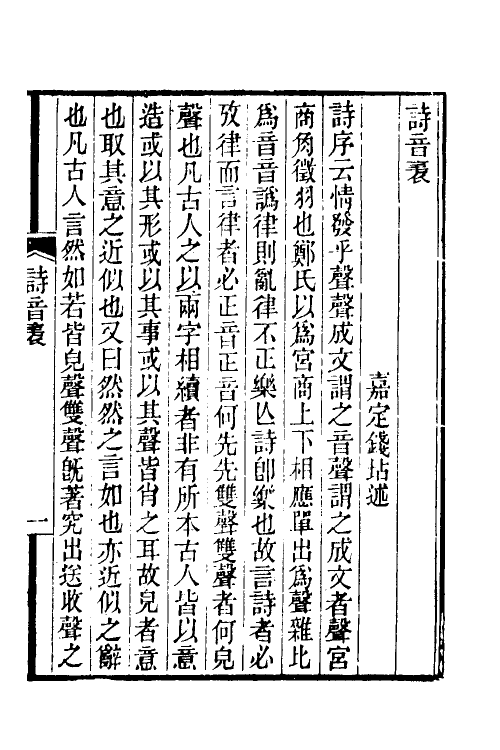 詩音表
嘉定錢坫述
詩序云情發乎聲聲成文謂之音聲謂之成文者聲宮
商角徵羽也鄭氏以爲宮商上下相應單出爲聲雜比
爲音音譌律則亂律不正樂亾詩卽樂也故言詩者必
攷律而言律者必正音正音何先先雙聲雙聲者何皃
聲也凡古人之以兩字相續者非有所本古人皆以意
造或以其形或以其事或以其聲皆肖之耳故皃者意
也取其意之近似也又曰然然之言如也亦近似之辭
也凡古人言然如若皆皃聲雙聲旣著究出送收聲之
詩音表
一